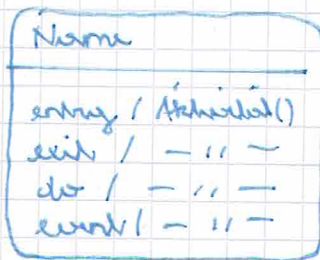 Name
entry / Aktivität()
exit / — " —
do / — " —
event / — " —